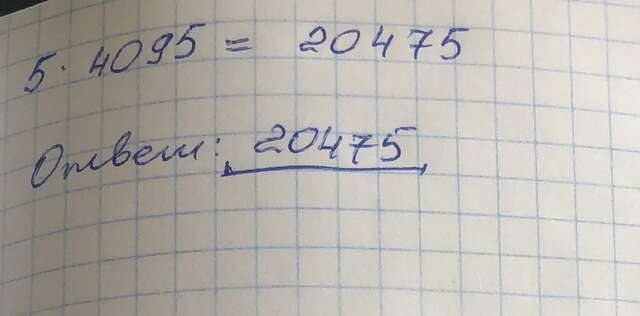 5 · 4095 = 20475
Ответ: 20475